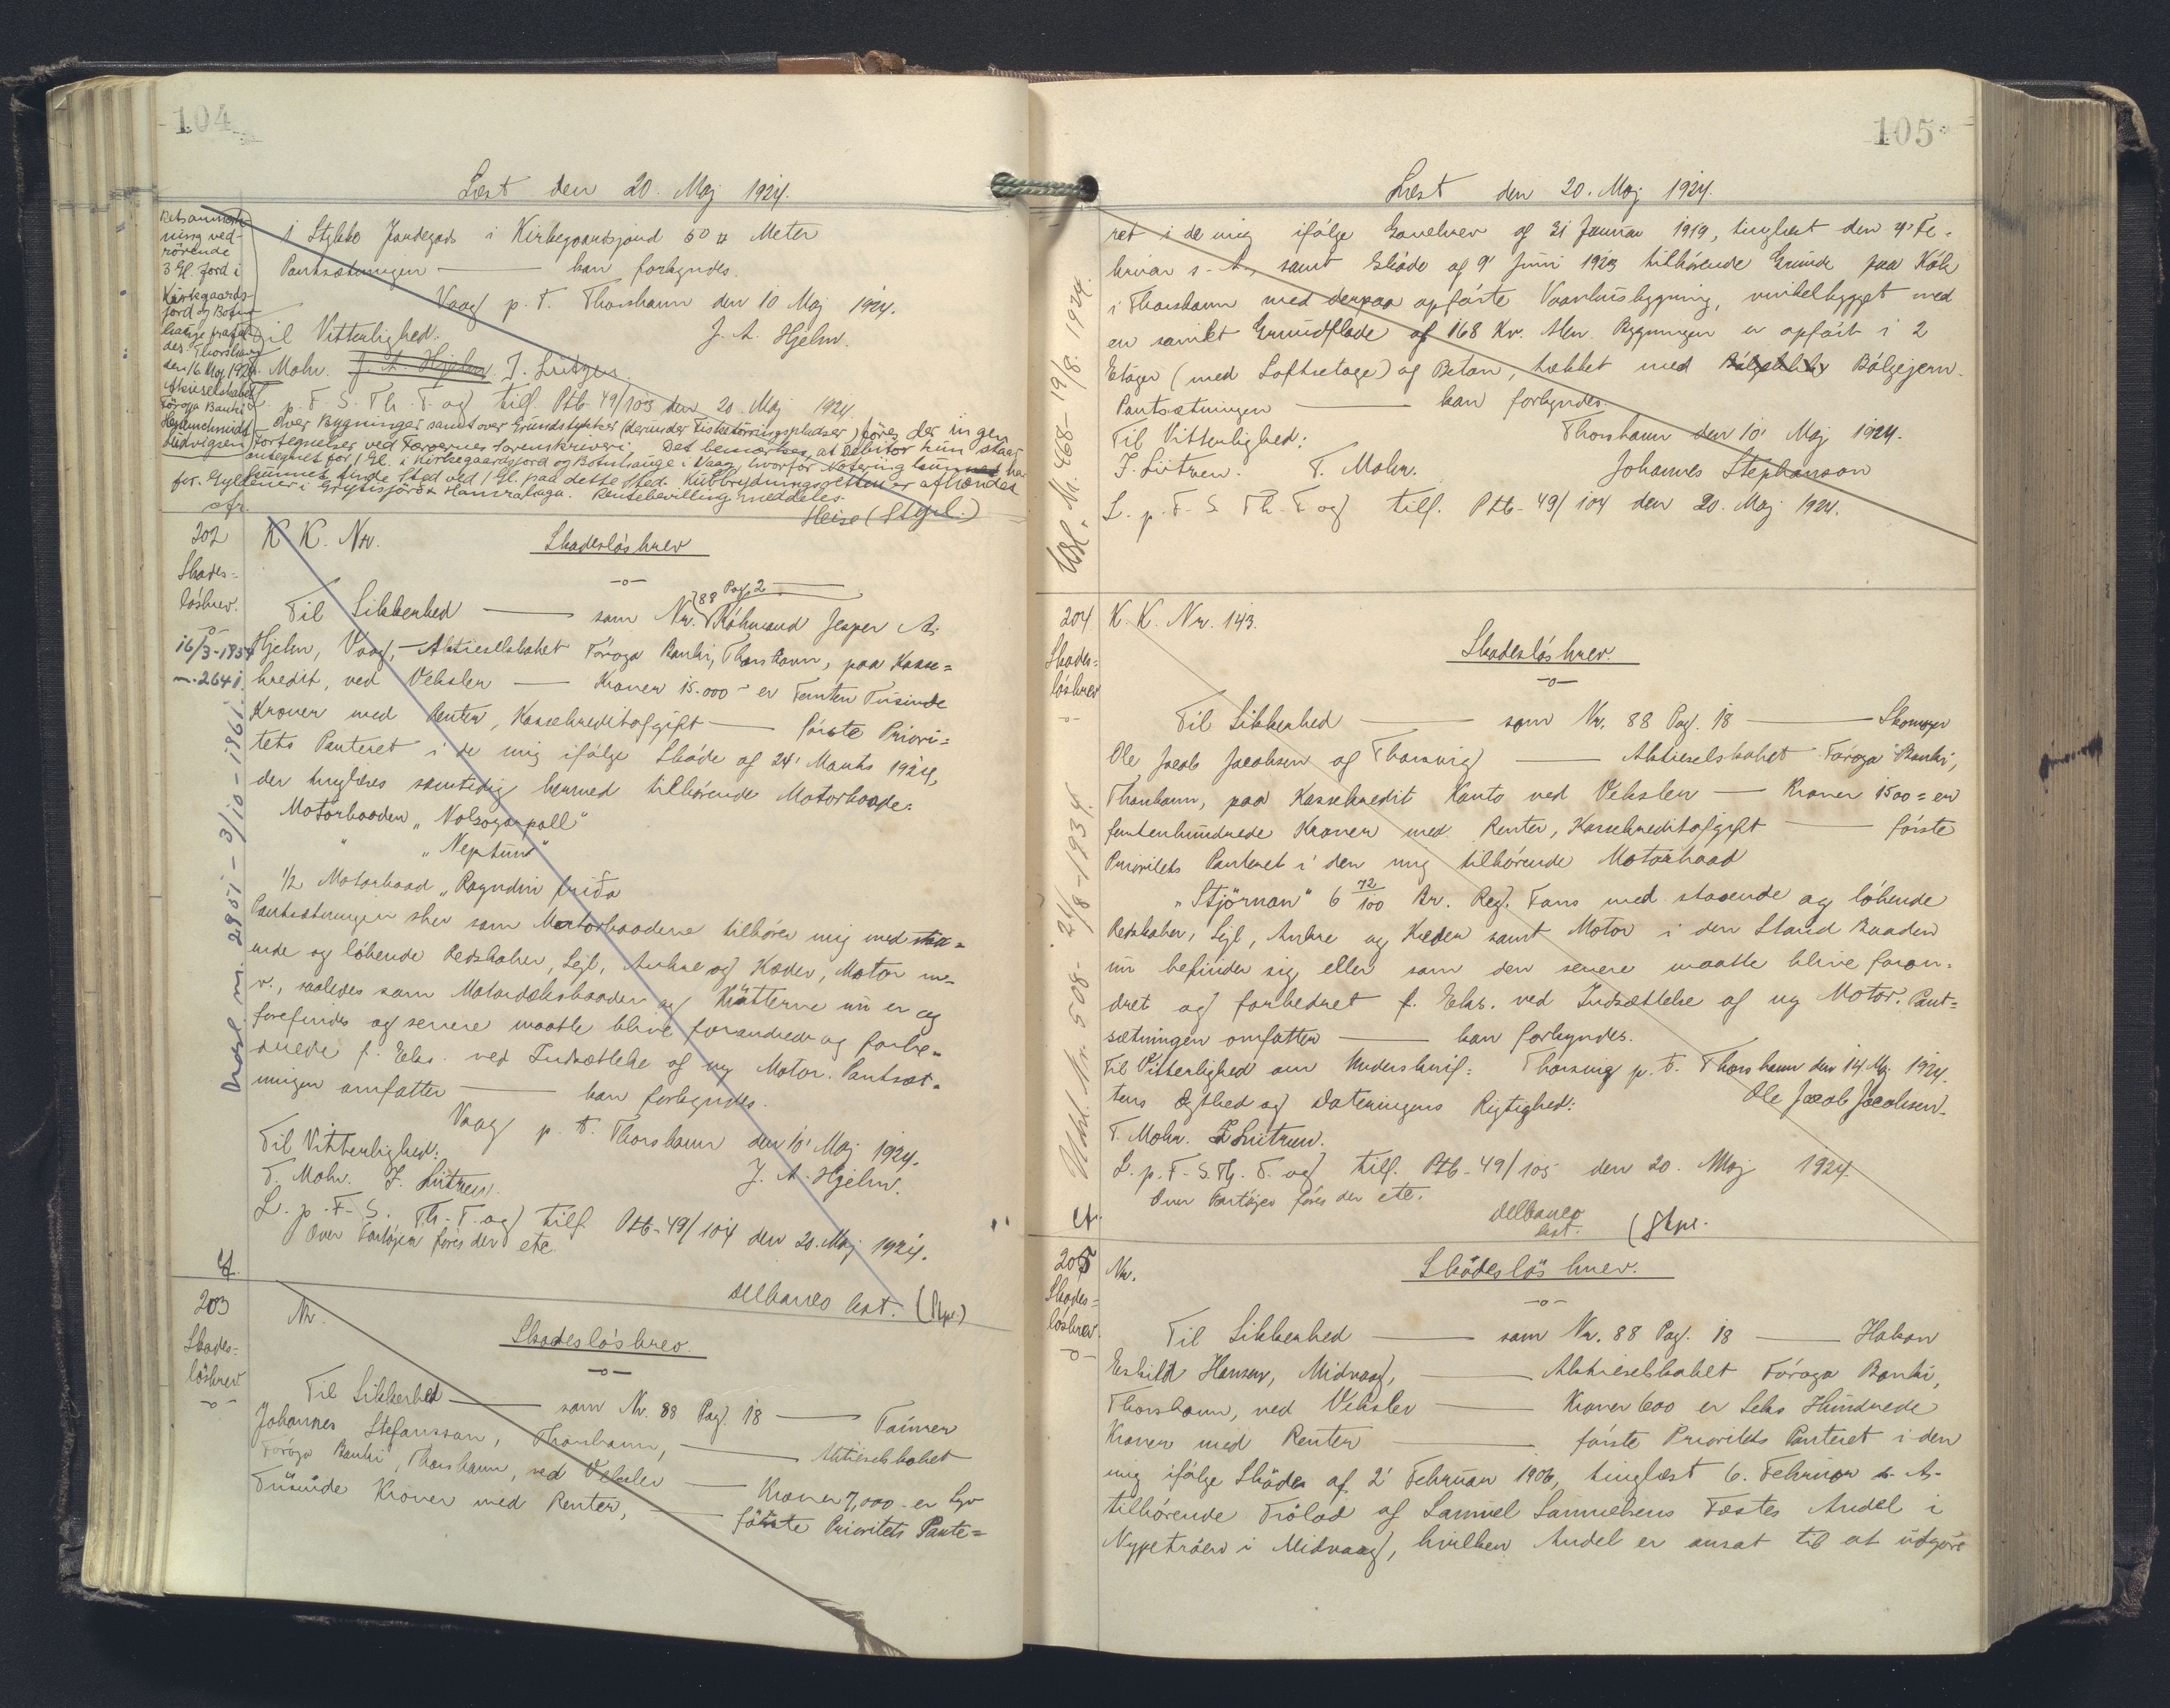 104
Læst den 20. Maj 1924.
Retsanmærk-
ning ved-
rörende
3 Gl. Jord i
Kirkegaards-
jord og Botn-
hauge frafal-
des. Thorshavn
den 16. Maj 1924.
Aktieselskabet
Föroya Banki
Ludvigsen
1 Stykke Jordegods i Kirkegaardsjord 50 □ Meter
Pantsætningen — kan forkyndes.
Vaag p. t. Thorshavn den 10 Maj 1924.
Til Vitterlighed: J. A. Hjelm.
T. Mohr. J. A. Hjelm J. Lützen
L. p. F. S. Th. T. og tilf. Ptb. 49/103 den 20. Maj 1924.
Over Bygninger samt over Grundstykker (derunder Fisketörringspladser) föres der ingen
Fortegnelser ved Færøernes Sorenskriveri. Det bemærkes, at Debitor kun staar
antegnet for 1 Gl. i Kirkegaardsjord og Botnhauge i Vaag, hvorfor Notering kun har
kunnet finde Sted ved 1 Gl. paa dette Sted. Kulbrydningsretten er afhændet
for Gyldener i Hamrahaga. Rentebevilling meddeles.
Heise (Stpl.)
202
Skades-
løsbrev.
-o-
16/3-1954
n. 2641
Udsl. n. 2951 - 3/10-1961
K K. Nr. Skadesløsbrev
-o-
Til Sikkerhed — som Nr. 88 Pag. 2 — Købmand Jesper A.
Hjelm, Vaag, - Aktieselskabet Föroya Banki, Thorshavn, paa Kasse=
kredit, ved Veksler — Kroner 15.000 - er Femten Tusinde
Kroner med Renter, Kassekreditafgift — første Priori=
tets Panteret i de mig ifølge Skøde af 24' Marts 1924,
der tinglæses samtidig hermed tilhørende Motorbaade:
Motorbaaden „Nolsoyarpall"
" „Neptun"
1/2 Motorbaad „Ragndin friða
Pantsætningen sker som Motorbaadene tilhører mig med staa=
ende og løbende Redskaber, Sejl, Ankre og Kæder, Motor m.
v., saaledes som Motordæksbaaden og Kutterne nu er og
forefindes og senere maatte blive forandrede og forbe=
drede f. Eks. ved Indsættelse af ny Motor. Pantsæt=
ningen omfatter — kan forkyndes.
Vaag p. t. Thorshavn den 10' Maj 1924.
Til Vitterlighed: J. A. Hjelm.
T. Mohr. J. Lützen.
L. p. F. S. Th. T. og tilf. Ptb. 49/104 den 20. Maj 1924.
Over Fartøjer føres der etc.
Delbanco kst. (Stpl.)
203
Skades=
løsbrev
-o-
Nr.
Skadesløsbrev.
-o-
Til Sikkerhed — som Nr. 88 Pag. 18 — Tømrer
Johannes Stefansson, Thorshavn, — Aktieselskabet
Föroya Banki, Thorshavn, ved Veksler — Kroner 7,000 - er Syv
Tusinde Kroner med Renter, — første Prioritets Pante=
105
Læst den 20. Maj 1924.
Udsl. Nr. 468 - 19/8. 1924.
ret i de mig ifølge Gavebrev af 31 Januar 1919, tinglæst den 4' Fe=
bruar s. A., samt Skøde af 9' Juni 1923 tilhørende Grunde paa Kák
i Thorshavn med derpaa opførte Vaanhusbygning, vinkelbygget med
en samlet Grundflade af 168 Kv. Alen. Bygningen er opført i 2
Etager (med Loftsetage) af Beton, tækket med Bølgeblik Bølgejern.
Pantsætningen — kan forkyndes.
Til Vitterlighed: Thorshavn den 10' Maj 1924.
J. Lützen. T. Mohr. Johannes Stephanson
L. p. F. S. Th. T. og tilf. Ptb. 49/104 den 20. Maj 1924.
204
Skades=
løsbrev
-o-
Udsl. Nr. 508 - 21/8-1934.
K. K. Nr. 143.
Skadesløsbrev.
-o-
Til Sikkerhed — som Nr. 88 Pag. 18 — Skomager
Ole Jacob Jacobsen af Thorsvig — Aktieselskabet Föroya Banki,
Thorshavn, paa Kassekredit Konto ved Veksler — Kroner 1500 = er
femtenhundrede Kroner med Renter, Kassekreditafgift — første
Prioritets Panteret i den mig tilhørende Motorbaad
„Stjörnan" 6 72/100 Br. Reg. Tons med staaende og løbende
Redskaber, Sejl, Ankre og Kæder samt Motor i den Stand Baaden
nu befinder sig eller som den senere maatte blive foran=
dret og forbedret f. Eks. ved Indsættelse af ny Motor. Pant=
sætningen omfatter — kan forkyndes.
Til Vitterlighed om Underskrif= Thorsvig p. t. Thorshavn den 14. Maj 1924.
tens Ægthed og Dateringens Rigtighed: Ole Jacob Jacobsen.
T. Mohr. J. Lützen.
L. p. F. S. Th. T. og tilf. Ptb. 49/105 den 20. Maj 1924.
Over Fartøjer føres der etc.
Delbanco
kst. (Stpl.
205
Skades=
løsbrev.
-o-
Nr. Skadesløsbrev.
-o-
Til Sikkerhed — som Nr. 88 Pag. 18 — Hakon
Eskild Hansen, Midvaag, — Aktieselskabet Föroya Banki,
Thorshavn, ved Veksler — Kroner 600 er Seks Hundrede
Kroner med Renter — første Prioritets Panteret i den
mig ifølge Skøde af 2' Februar 1906, tinglæst 6. Februar s. A.
tilhørende Trölod af Samuel Samuelsens Fæstes Andel i
Nypetröen i Midvaag, hvilken Andel er ansat til at udgøre